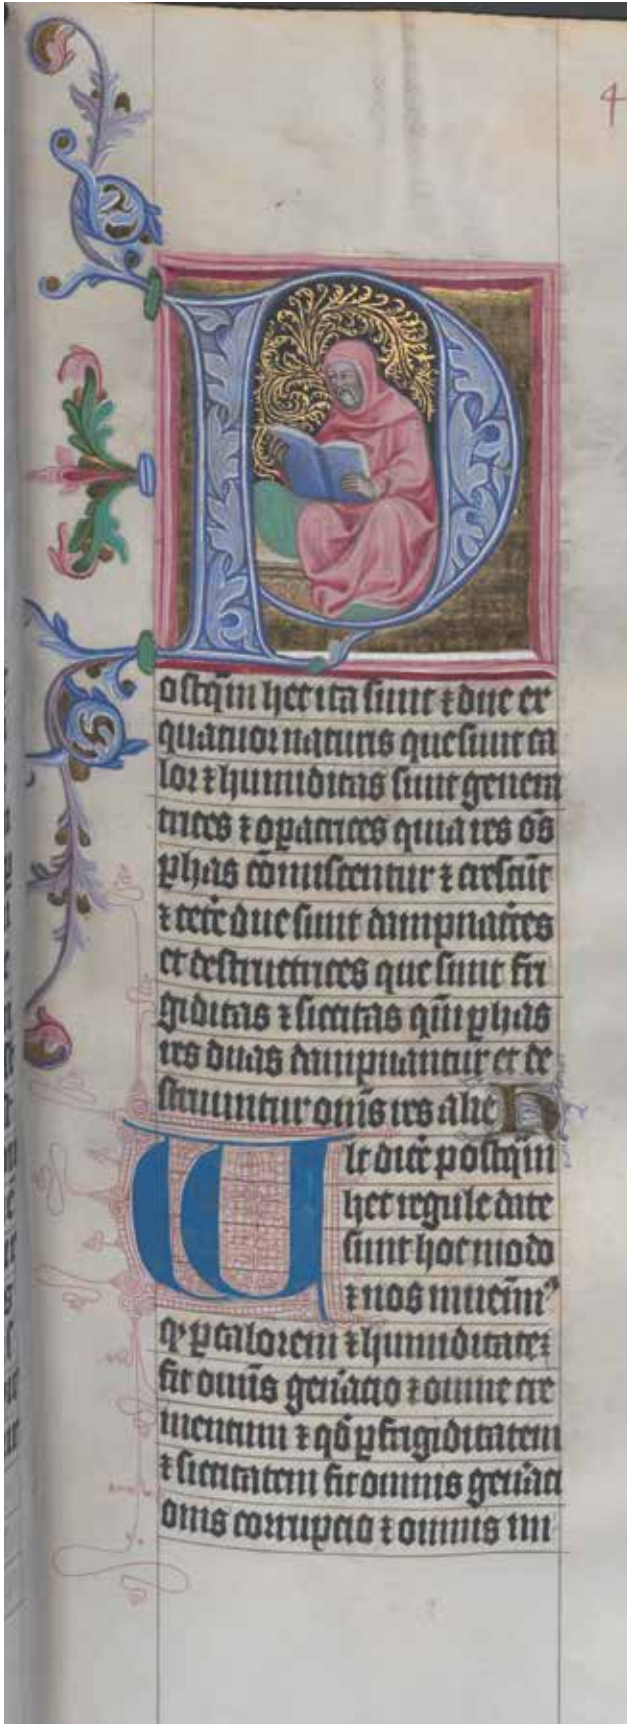 4
P
ostq̄m hec ita sunt ⁊ due ex
quatuor naturis que sunt ca
lor ⁊ humiditas sunt genera
trices ⁊ opatrices quia res oēs
phas cōmiscentur ⁊ crescūt
⁊ cetē due sunt dampnatrices
et destructrices que sunt fri
giditas ⁊ siccitas qm̄ phas
res duas dampnantur et de
struuntur om̄s res alie H
Ult dicē postq̄m
hec regule date
sunt hoc modo
⁊ nos
ꝙ p calorem ⁊ humiditatē
fit om̄is gen̄acio ⁊ omne cre
mentum ⁊ qd̄ p frigiditatem
⁊ siccitatem fit omnis gen̄aci
onis corrupcio ⁊ omnis im